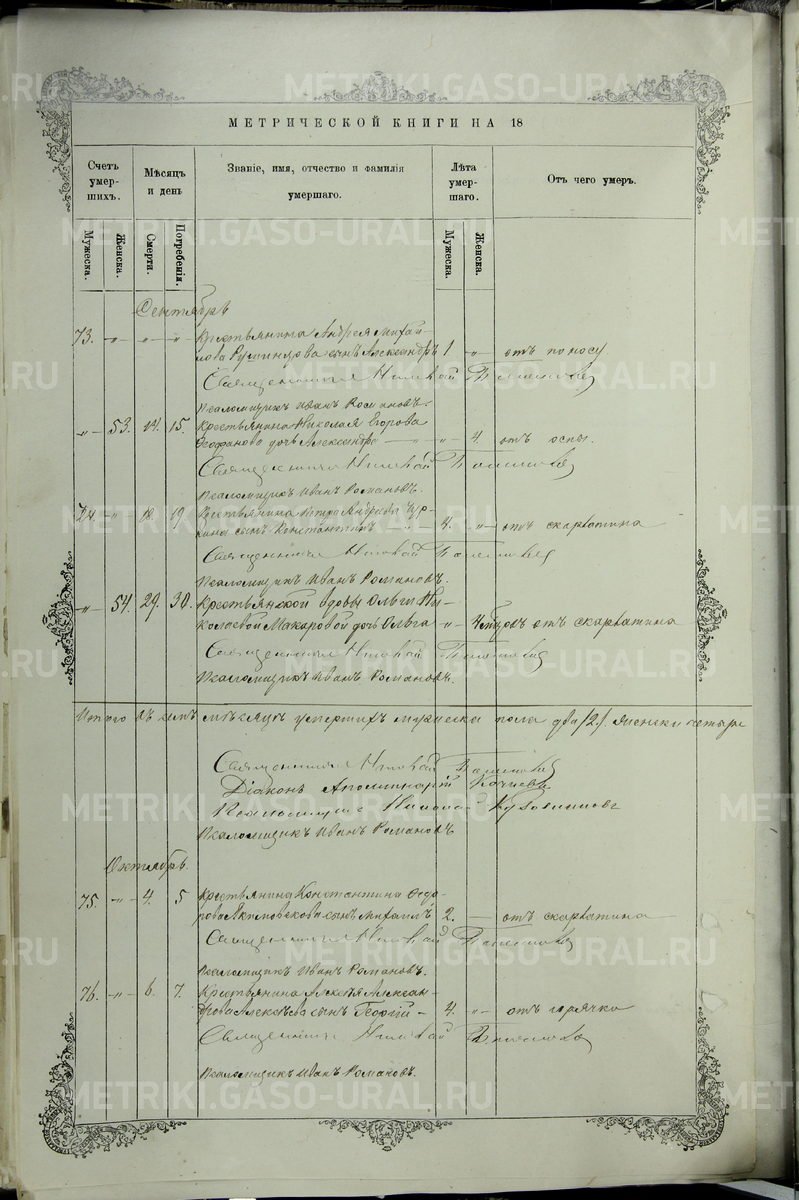 МЕТРИЧЕСКОЙ КНИГИ НА 18
Счетъ умершихъ.
Мѣсяцъ и день
Званіе, имя, отчество и фамилія умершаго.
Лѣта умершаго.
Отъ чего умеръ.
Мужеска.
Женска.
Смерти.
Погребенія.
Мужеска.
Женска.
Сентябрь
73. -„- -„- -„- Крестьянина Андрея Михай-
лова сынъ Александръ 1 -„- отъ поносу
Священникъ Николай
Псаломщикъ Иванъ Романовъ.
-„- 53. 14. 15. Крестьянина Николая Егорова
дочь Александра -„- 4. отъ оспы.
Священникъ Николай
Псаломщикъ Иванъ Романовъ.
74. -„- 18. 19 Крестьянина Петра Андреева
сынъ Константинъ 4. -„- отъ скарлатина
Священникъ Николай
Псаломщикъ Иванъ Романовъ.
-„- 54. 29. 30. Крестьянской вдовы Ольги Ни-
колаевой Макаровой дочь Ольга -„- отъ скарлатина
Священникъ Николай
Псаломщикъ Иванъ Романовъ.
Итого въ семъ мѣсяцѣ умершихъ мужеска пола два /2/. женска четыре
Священникъ Николай
Діаконъ Аполинарій
Псаломщикъ Николай
Псаломщикъ Иванъ Романовъ
Октябрь.
75. -„- 4. 5 Крестьянина Константина Федо-
рова сынъ Михаилъ 2. — отъ скарлатина
Священникъ Николай
Псаломщикъ Иванъ Романовъ.
76. -„- 6. 7. Крестьянина Алексѣя Алексан-
дрова Алексѣева сынъ Георгій - 4. -„- отъ горячки
Священникъ Николай
Псаломщикъ Иванъ Романовъ.
METRIKI.GASO-URAL.RU